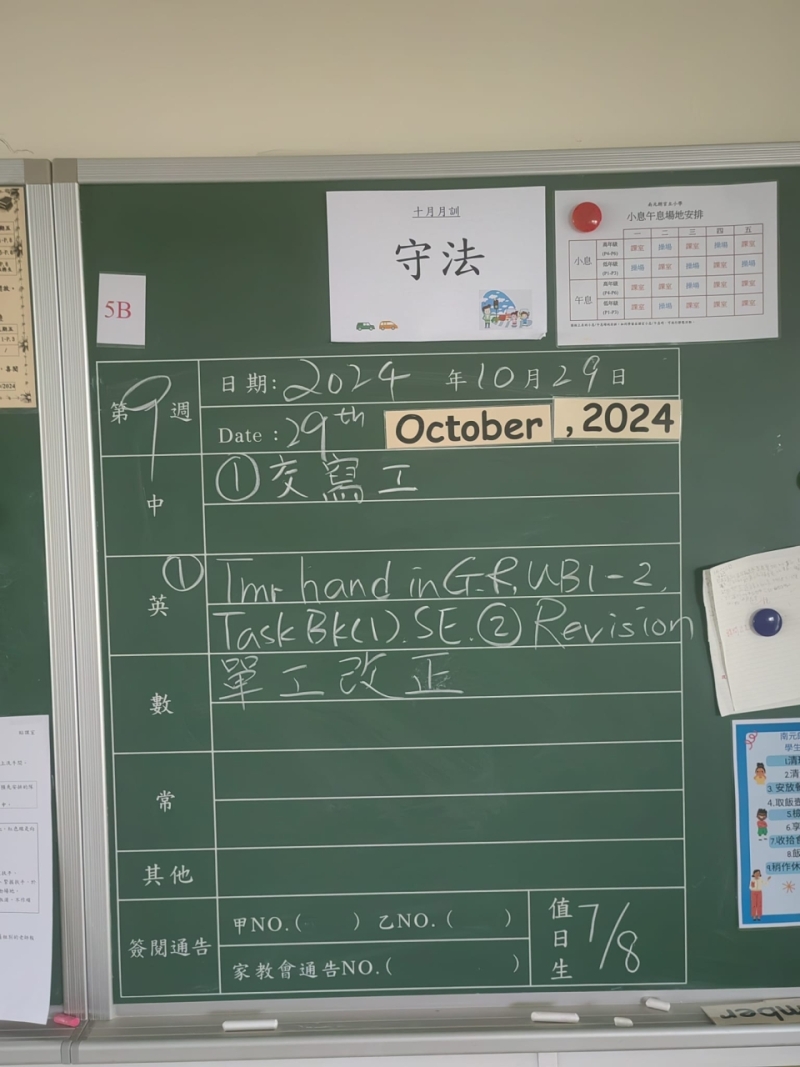 十月月訓
守法
小息午息場地安排
一 二 三 四 五
小息
高年級 (P4-P6) 課室 操場 課室 操場 課室
低年級 (P1-P3) 操場 課室 操場 課室 操場
午息
課室 課室 課室 課室 課室
課室 操場 課室 課室 課室
5B
第9週
日期: 2024 年10月29日
Date : 29th October , 2024
中
①交寫工
英
① Tmr hand in G.R, UB1-2,
Task Bk(1). SE. ② Revision
數
單工改正
常
其他
簽閱通告
甲NO.( ) 乙NO. ( )
家教會通告NO.( )
值日生
7/8
南元
學生
1.清
2.清
3. 安放
4.取飯
5.
6.享
7.收拾
8.飯
9.稍作休
mber